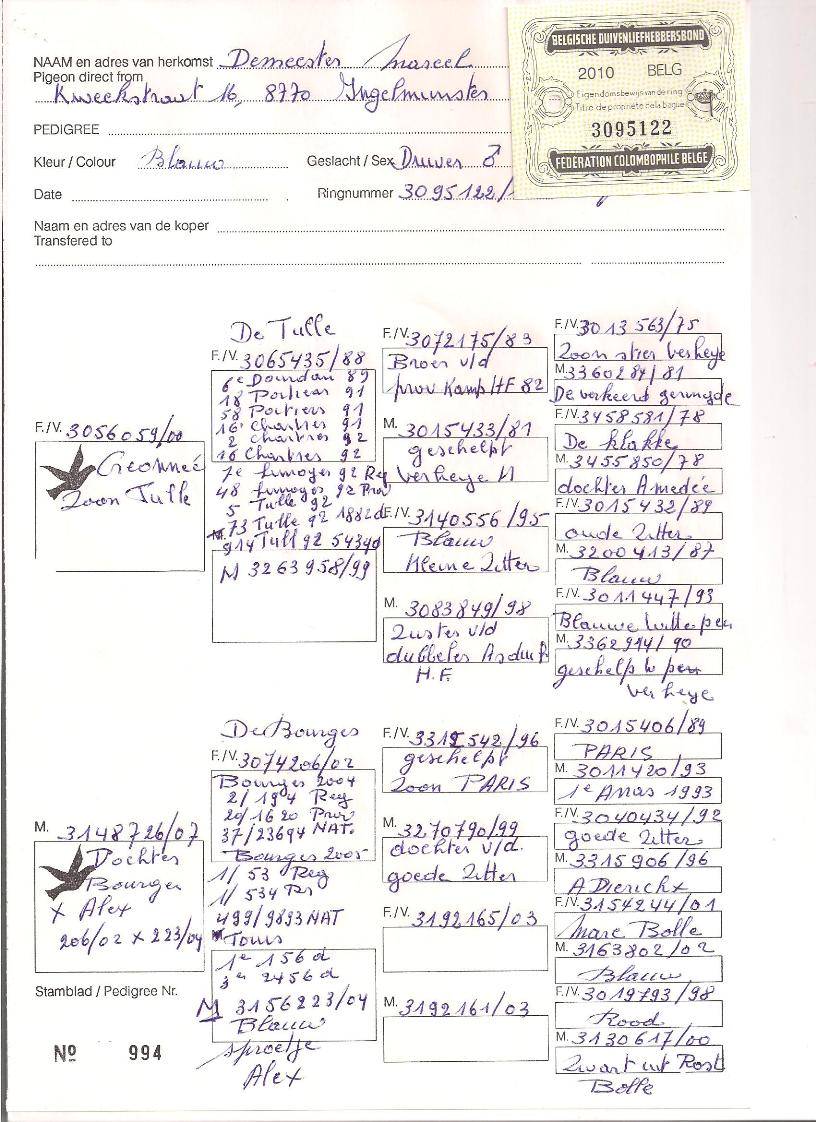 NAAM en adres van herkomst Demeester Marcel
Pigeon direct from
Kweekstraat 16, 8770 Ingelmunster
PEDIGREE
Kleur / Colour Blauw
Geslacht / Sex Duiver ♂
Date
Ringnummer 3095122/
Naam en adres van de koper
Transfered to
BELGISCHE DUIVENLIEFHEBBERSBOND
2010 BELG
Eigendomsbewijs van de ring
Titre de propriété de la bague
3095122
FEDERATION COLOMBOPHILE BELGE
F./V. 3056059/00
Geonneé
Zoon Tulle
De Tulle
F./V. 3065435/88
6e Dourdan 89
18 Poitiers 91
58 Poitiers 91
16 Chartres 91
2 Chartres 92
16 Chartres 92
7e Limoges 92 Reg
48 Limoges 92 Prov
5 Tulle 92
M. 73 Tulle 92 1882d
914 Tull 92 5439d
M 3263958/99
F./V. 3072175/83
Broer v/d
prov Kamp HF 82
M. 3015433/81
geschelpt
Verheye H
F./V. 3140556/95
Blauw
Kleine Zitter
M. 3083849/98
Zuster v/d
dubbelen Asduif
H.F.
F./V. 3013563/75
Zoon stier Verheye
M. 3360287/81
De verkeerd geringde
F./V. 3458581/78
De Klakke
M. 3455850/78
dochter Amedée
F./V. 3015432/89
oude Zitter
M. 3200413/87
Blauw
F./V. 3011447/93
Blauwe witte pen
M. 3362914/90
geschelp w pen
Verheye
M. 3148726/07
Dochter
Bourges
x Alex
206/02 x 223/04
De Bourges
F./V. 3074206/02
Bourges 2004
2/194 Reg
20/1620 Prov
37/23694 NAT.
Bourges 2005
1/53 Reg
1/534 Pr
499/9893 NAT
Tours
1e 156 d
3e 2456 d
M 3156223/04
Blauw
sproetje
Alex
F./V. 3312542/96
geschelpt
Zoon PARIS
M. 3270790/99
dochter v/d.
goede Zitter
F./V. 3192165/03
M. 3192161/03
F./V. 3015406/89
PARIS
M. 3011420/93
1e Arras 1993
F./V. 3040434/92
goede Zitter
M. 3315906/96
A Dierickx
F./V. 3154244/01
Marc Bolle
M. 3163802/02
Blauw
F./V. 3019793/98
Rood
M. 3130617/00
Zwart uit Rost
Bolle
Stamblad / Pedigree Nr.
Nº 994